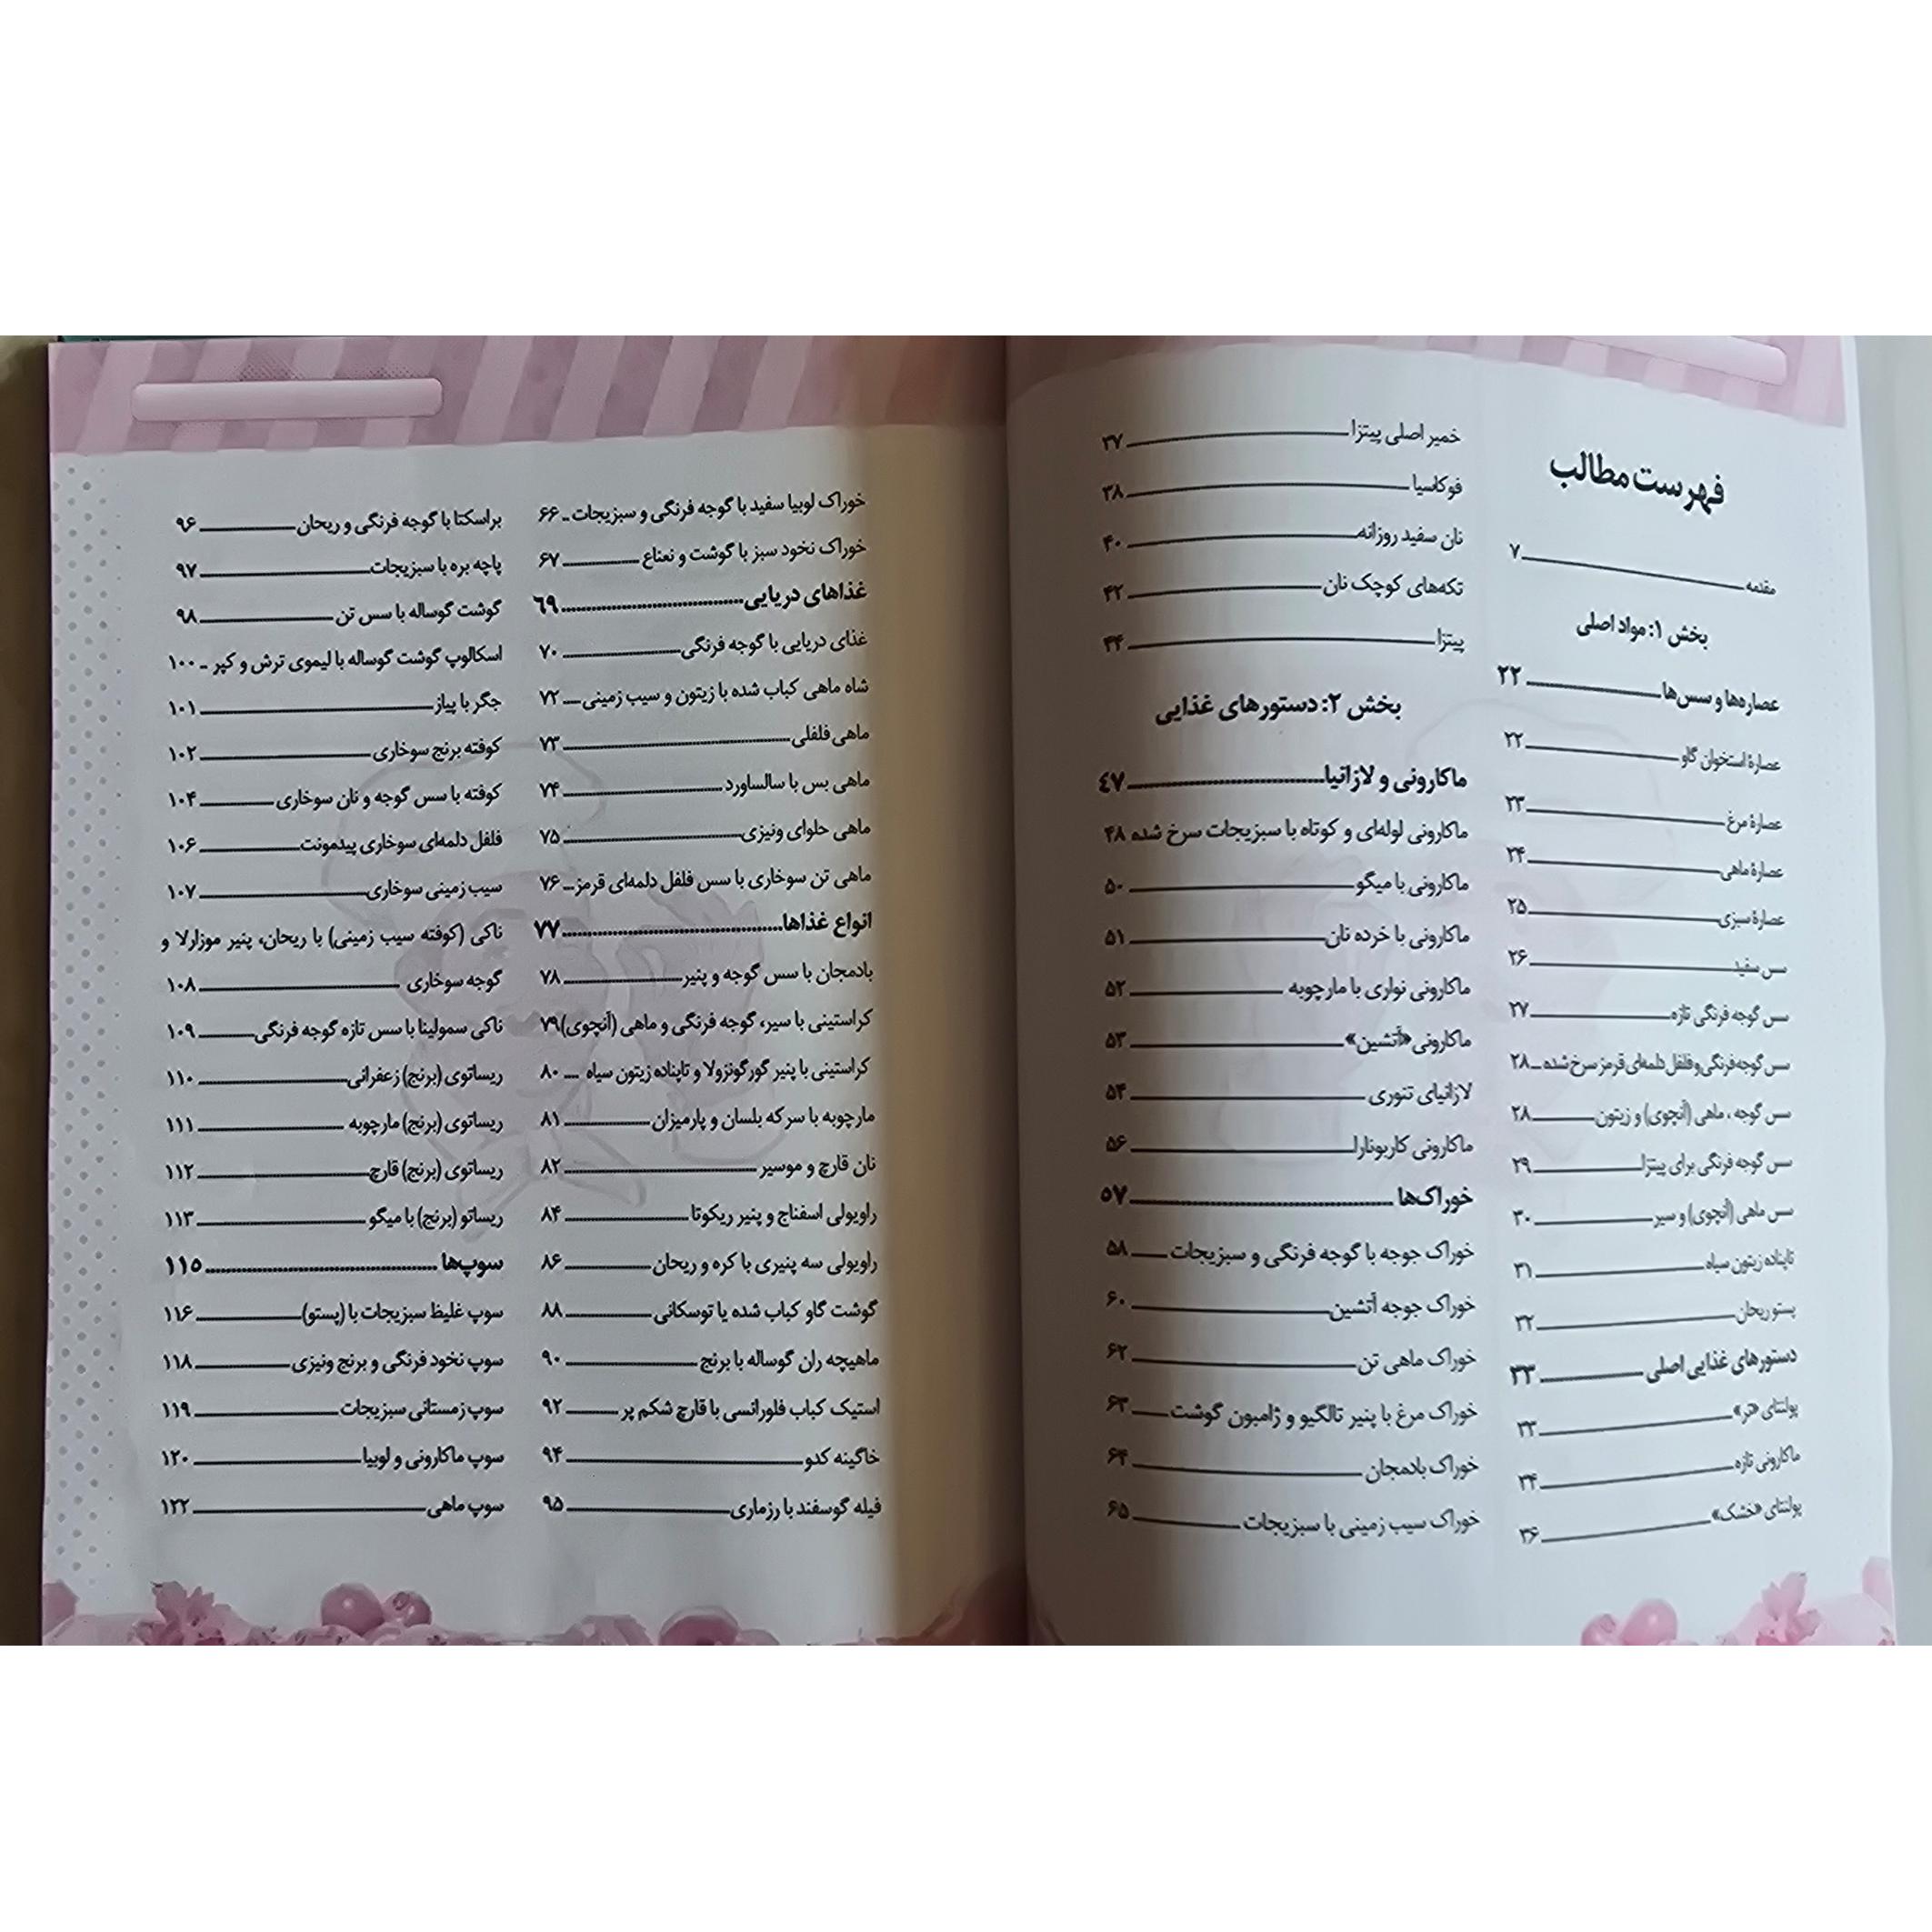 فهرست مطالب
مقدمه ۷
بخش ۱: مواد اصلی
عصاره‌ها و سس‌ها ۲۲
عصارهٔ استخوان گاو ۲۲
عصارهٔ مرغ ۲۳
عصارهٔ ماهی ۲۴
عصارهٔ سبزی ۲۵
سس سفید ۲۶
سس گوجه فرنگی تازه ۲۷
سس گوجه فرنگی و فلفل دلمه‌ای قرمز سرخ شده ۲۸
سس گوجه ، ماهی (آنچوی) و زیتون ۲۸
سس گوجه فرنگی برای پیتزا ۲۹
سس ماهی (آنچوی) و سیر ۳۰
تاپناده زیتون سیاه ۳۱
پستو ریحان ۳۲
دستورهای غذایی اصلی ۳۳
پولنتای «تر» ۳۳
ماکارونی تازه ۳۴
پولنتای «خشک» ۳۶
خمیر اصلی پیتزا ۳۷
فوکاسیا ۳۸
نان سفید روزانه ۴۰
تکه‌های کوچک نان ۴۲
پیتزا ۴۴
بخش ۲: دستورهای غذایی
ماکارونی و لازانیا ۴۷
ماکارونی لوله‌ای و کوتاه با سبزیجات سرخ شده ۴۸
ماکارونی با میگو ۵۰
ماکارونی با خرده نان ۵۱
ماکارونی نواری با مارچوبه ۵۲
ماکارونی «آتشین» ۵۳
لازانیای تنوری ۵۴
ماکارونی کاربونارا ۵۶
خوراک‌ها ۵۷
خوراک جوجه با گوجه فرنگی و سبزیجات ۵۸
خوراک جوجه آتشین ۶۰
خوراک ماهی تن ۶۲
خوراک مرغ با پنیر تالگیو و ژامبون گوشت ۶۳
خوراک بادمجان ۶۴
خوراک سیب زمینی با سبزیجات ۶۵
خوراک لوبیا سفید با گوجه فرنگی و سبزیجات ۶۶
خوراک نخود سبز با گوشت و نعناع ۶۷
غذاهای دریایی ۶۹
غذای دریایی با گوجه فرنگی ۷۰
شاه ماهی کباب شده با زیتون و سیب زمینی ۷۲
ماهی فلفلی ۷۳
ماهی بس با سالساورد ۷۴
ماهی حلوای ونیزی ۷۵
ماهی تن سوخاری با سس فلفل دلمه‌ای قرمز ۷۶
انواع غذاها ۷۷
بادمجان با سس گوجه و پنیر ۷۸
کراستینی با سیر، گوجه فرنگی و ماهی (آنچوی) ۷۹
کراستینی با پنیر گورگونزولا و تاپناده زیتون سیاه ۸۰
مارچوبه با سرکه بلسان و پارمیزان ۸۱
نان قارچ و موسیر ۸۲
راویولی اسفناج و پنیر ریکوتا ۸۴
راویولی سه پنیری با کره و ریحان ۸۶
گوشت گاو کباب شده یا توسکانی ۸۸
ماهیچه ران گوساله با برنج ۹۰
استیک کباب فلورانسی با قارچ شکم پر ۹۲
خاگینه کدو ۹۴
فیله گوسفند با رزماری ۹۵
براسکتا با گوجه فرنگی و ریحان ۹۶
پاچه بره با سبزیجات ۹۷
گوشت گوساله با سس تن ۹۸
اسکالوپ گوشت گوساله با لیموی ترش و کپر ۱۰۰
جگر با پیاز ۱۰۱
کوفته برنج سوخاری ۱۰۲
کوفته با سس گوجه و نان سوخاری ۱۰۴
فلفل دلمه‌ای سوخاری پیدمونت ۱۰۶
سیب زمینی سوخاری ۱۰۷
ناکی (کوفته سیب زمینی) با ریحان، پنیر موزارلا و
گوجه سوخاری ۱۰۸
ناکی سمولینا با سس تازه گوجه فرنگی ۱۰۹
ریساتوی (برنج) زعفرانی ۱۱۰
ریساتوی (برنج) مارچوبه ۱۱۱
ریساتوی (برنج) قارچ ۱۱۲
ریساتو (برنج) با میگو ۱۱۳
سوپ‌ها ۱۱۵
سوپ غلیظ سبزیجات با (پستو) ۱۱۶
سوپ نخود فرنگی و برنج ونیزی ۱۱۸
سوپ زمستانی سبزیجات ۱۱۹
سوپ ماکارونی و لوبیا ۱۲۰
سوپ ماهی ۱۲۲